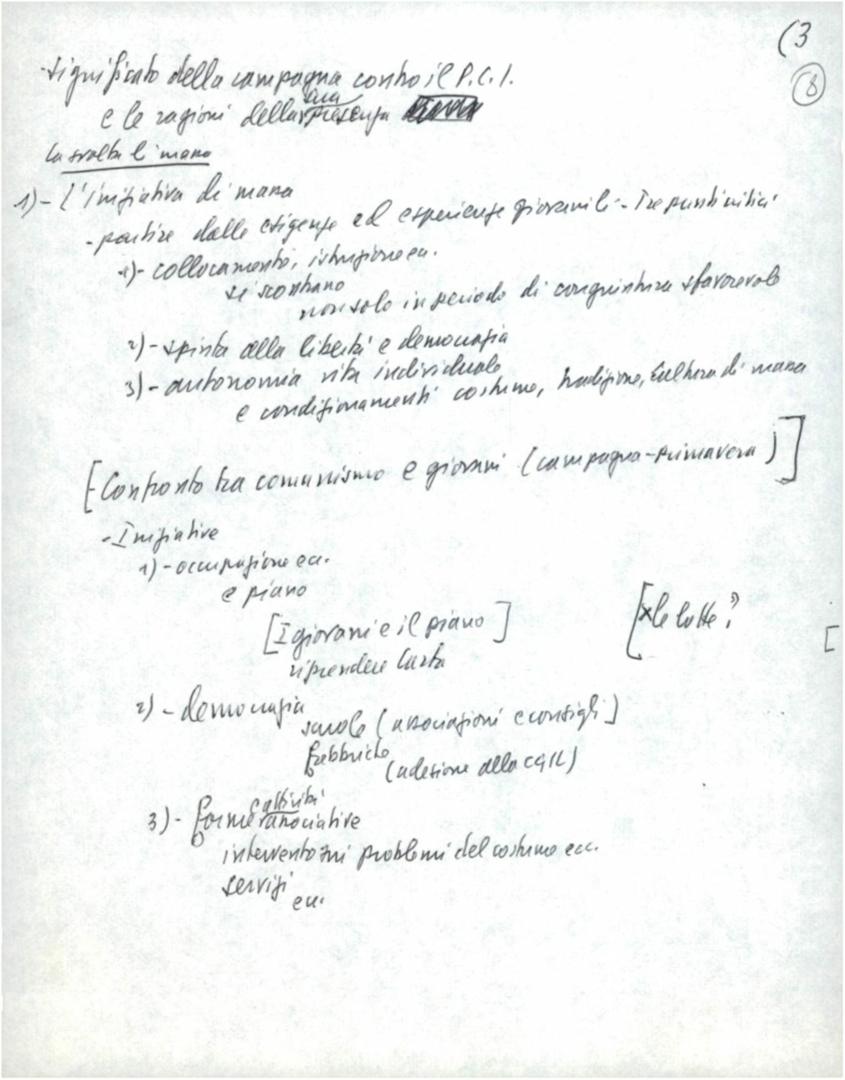 (3
8
- Significato della campagna contro il P.C.I.
e le ragioni della sua presenza
La svolta di massa
1) - L'iniziativa di massa
- partire dalle esigenze ed esperienze giovanili - Tre punti critici
1) - collocamento, istruzione ecc.
si scontrano
non solo in periodo di congiuntura sfavorevole
2) - spinta alla libertà e democrazia
3) - autonomia vita individuale
e condizionamenti costume, tradizione, cultura di massa
[Confronto tra comunismo e giovani (campagna-primavera)]
- Iniziative
1) - occupazione ecc.
e piano
[I giovani e il piano]
[x le lotte?
[
riprendere Carta
2) - democrazia
scuole (associazioni e consigli)
fabbriche
(adesione alla CGIL)
e attività
3) - forme associative
intervento sui problemi del costume ecc.
servizi
ecc.